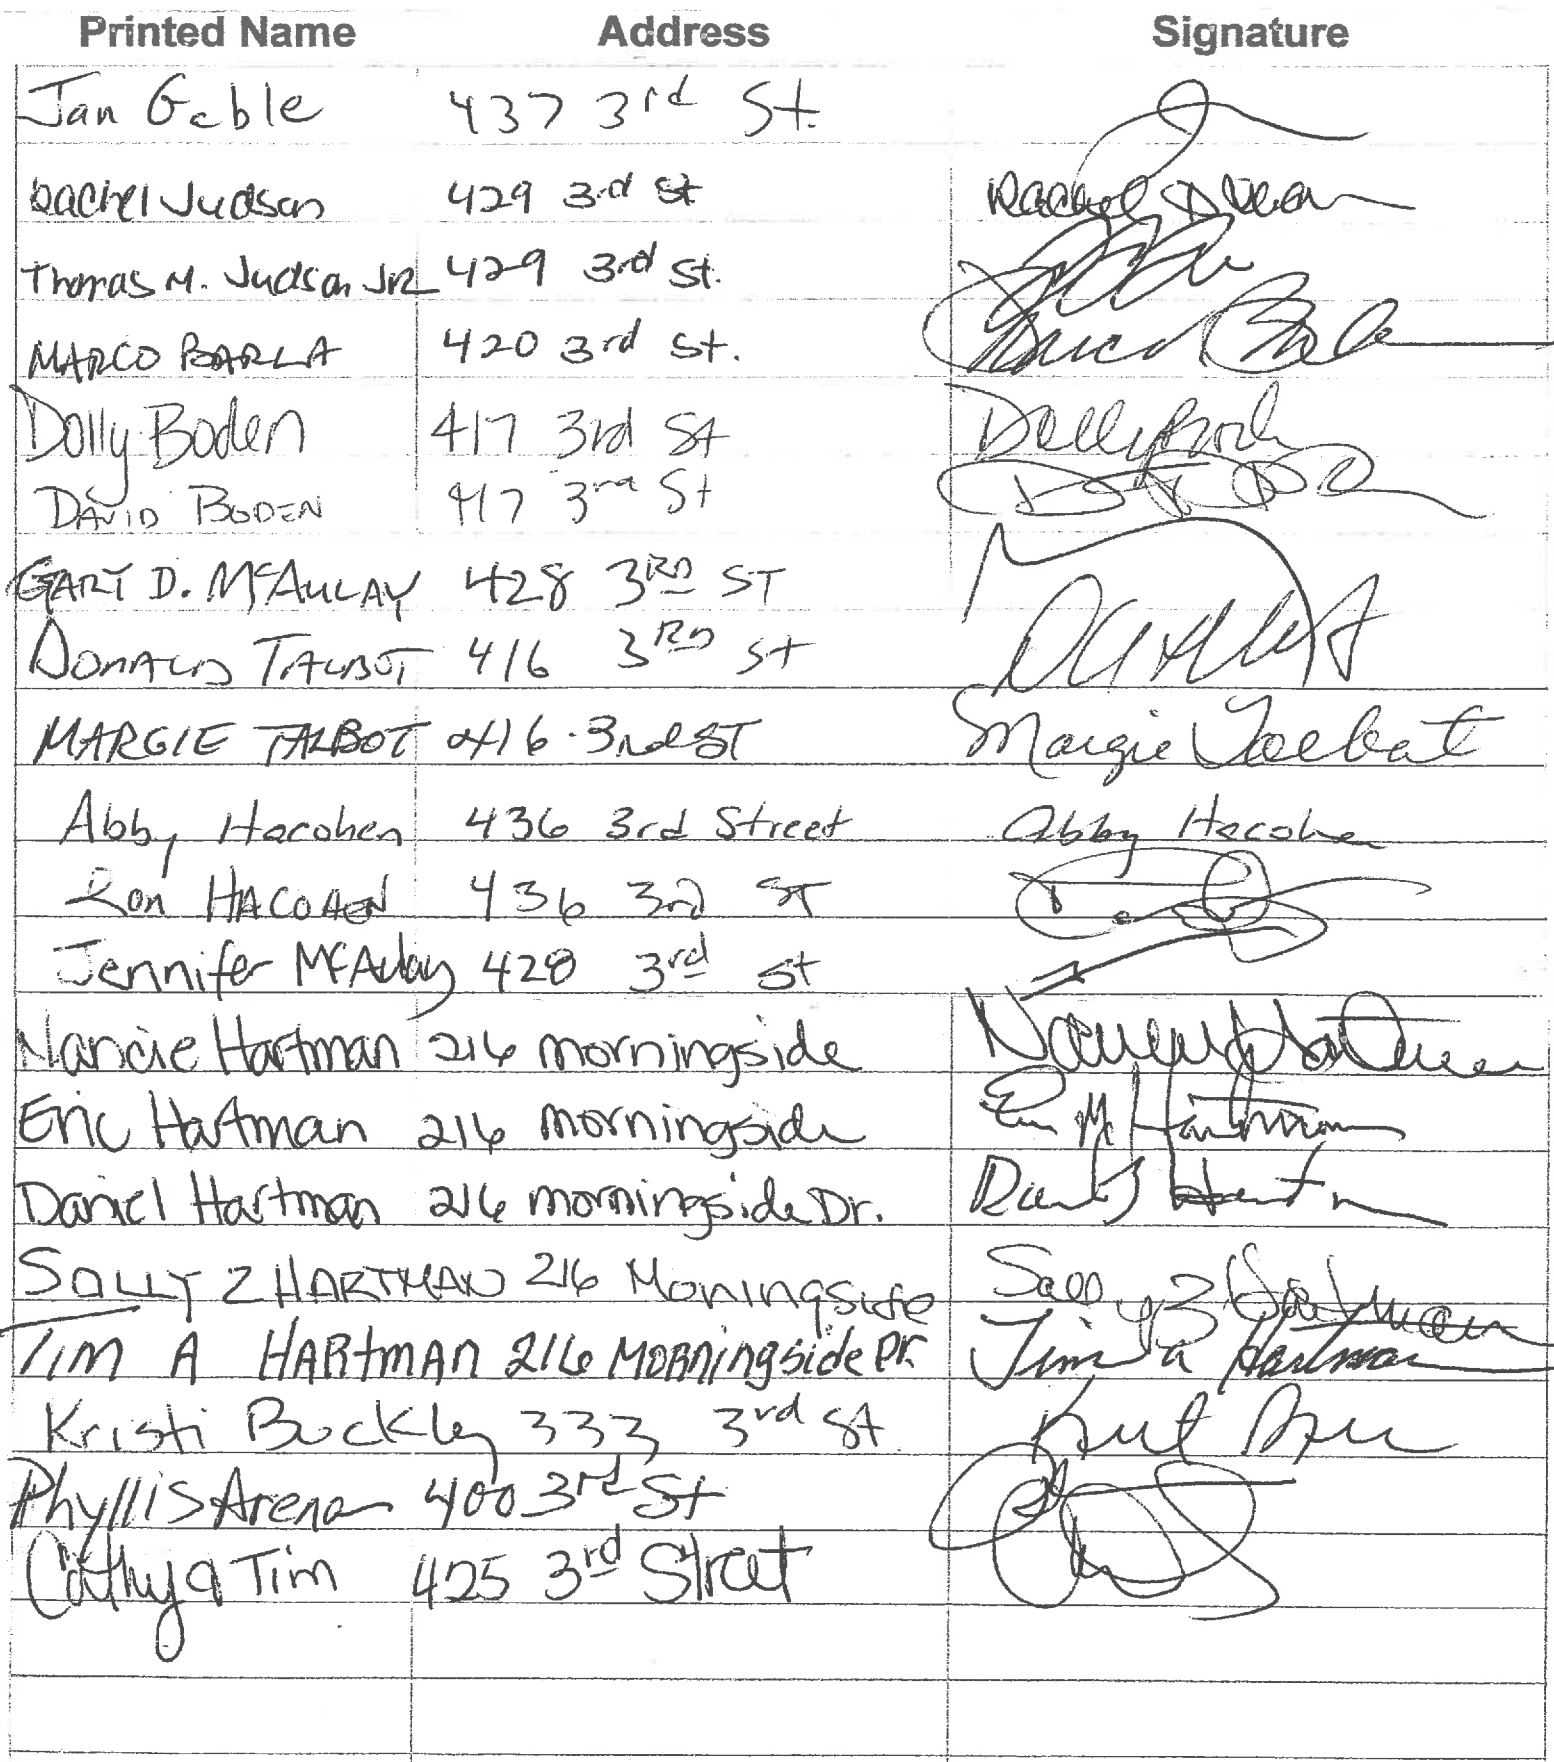 Printed Name Address Signature
Jan Gable 437 3rd St.
Rachel Judson 429 3rd St Rachel
Thomas M. Judson JR 429 3rd St.
MARCO BARLA 420 3rd St. Marco
Dolly Boden 417 3rd St Dolly Boden
DAVID BODEN 417 3rd St
GARY D. McAULAY 428 3RD ST
DONALD TALBOT 416 3RD St
MARGIE TALBOT 416 · 3rd ST Margie Talbot
Abby Hacohen 436 3rd Street Abby Hacohen
Ron HACOHEN 436 3rd ST
Jennifer McAulay 428 3rd St
Nancie Hartman 216 morningside Hartman
Eric Hartman 216 morningside Eric M Hartman
Daniel Hartman 216 morningside Dr. Hartman
SALLY Z HARTMAN 216 Moningside Sally Z Hartman
TIM A HARtMAN 216 MORNingside Dr. Tim A Hartman
Kristi Buckley 333 3rd St
Phyllis Arena 400 3rd St
Cathy & Tim 425 3rd Street